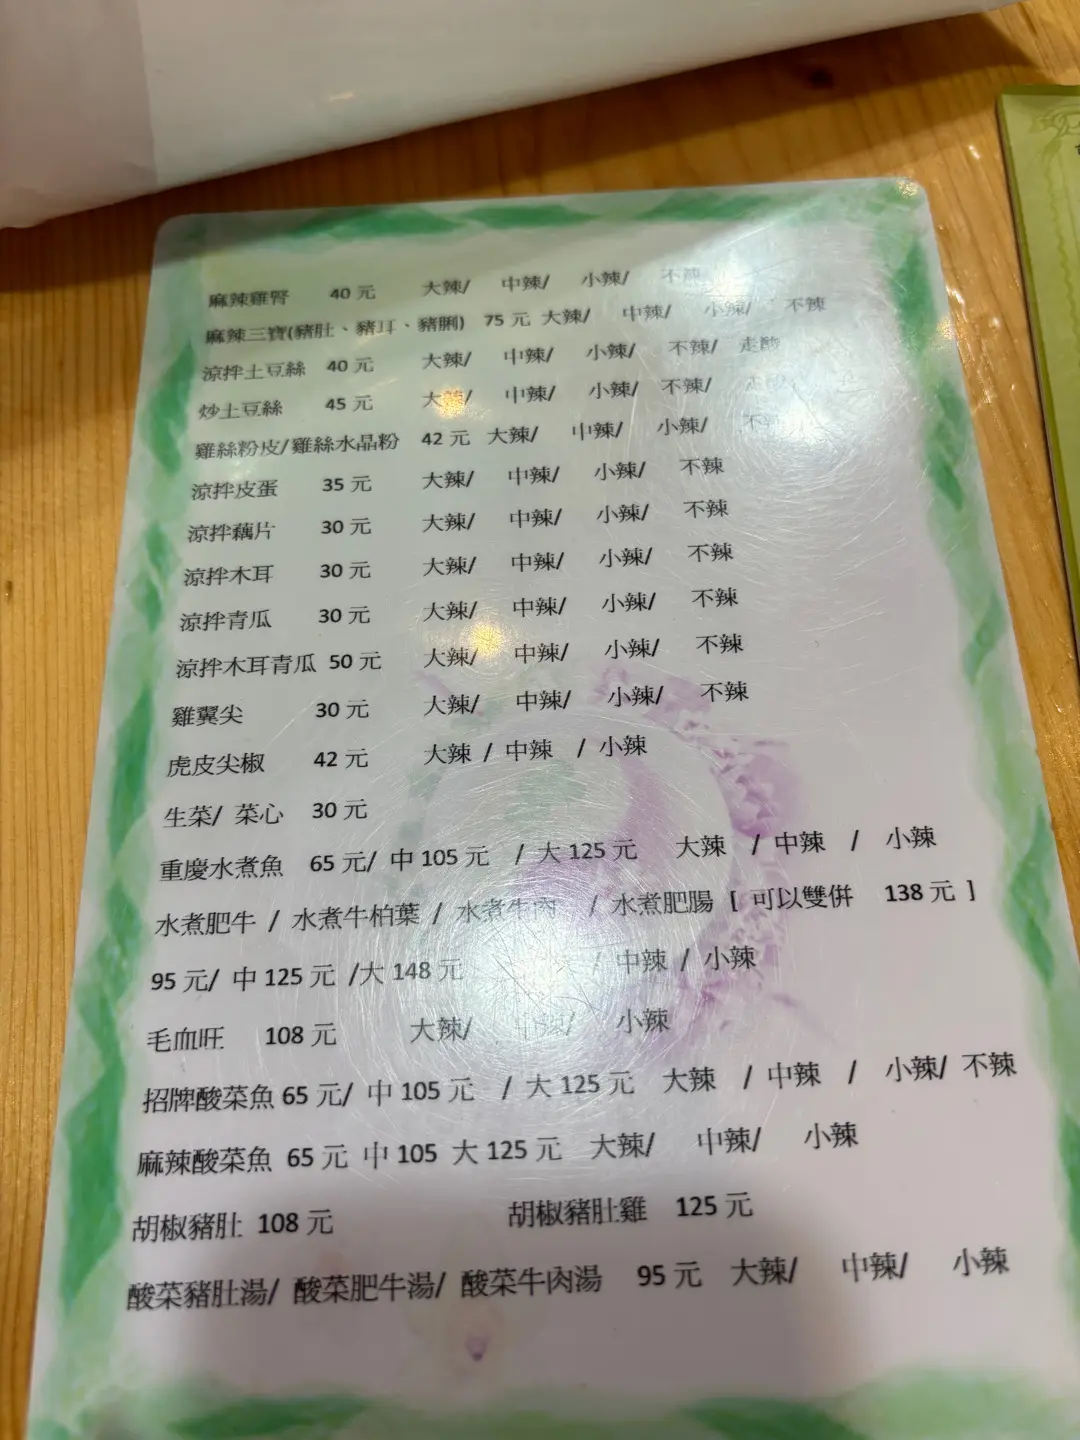 麻辣雞腎 40 元 大辣/ 中辣/ 小辣/ 不辣
麻辣三寶(豬肚、豬耳、豬脷) 75 元 大辣/ 中辣/ 小辣/ 不辣
涼拌土豆絲 40 元 大辣/ 中辣/ 小辣/ 不辣/ 走酸
炒土豆絲 45 元 大辣/ 中辣/ 小辣/ 不辣/ 走酸
雞絲粉皮/雞絲水晶粉 42 元 大辣/ 中辣/ 小辣/ 不辣
涼拌皮蛋 35 元 大辣/ 中辣/ 小辣/ 不辣
涼拌藕片 30 元 大辣/ 中辣/ 小辣/ 不辣
涼拌木耳 30 元 大辣/ 中辣/ 小辣/ 不辣
涼拌青瓜 30 元 大辣/ 中辣/ 小辣/ 不辣
涼拌木耳青瓜 50 元 大辣/ 中辣/ 小辣/ 不辣
雞翼尖 30 元 大辣/ 中辣/ 小辣/ 不辣
虎皮尖椒 42 元 大辣 / 中辣 / 小辣
生菜/ 菜心 30 元
重慶水煮魚 65 元/ 中 105 元 / 大 125 元 大辣 / 中辣 / 小辣
水煮肥牛 / 水煮牛柏葉 / 水煮牛肉 / 水煮肥腸 [ 可以雙併 138 元 ]
95 元/ 中 125 元 /大 148 元 / 中辣 / 小辣
毛血旺 108 元 大辣/ 中辣/ 小辣
招牌酸菜魚 65 元/ 中 105 元 / 大 125 元 大辣 / 中辣 / 小辣/ 不辣
麻辣酸菜魚 65 元 中 105 大 125 元 大辣/ 中辣/ 小辣
胡椒豬肚 108 元 胡椒豬肚雞 125 元
酸菜豬肚湯/ 酸菜肥牛湯/ 酸菜牛肉湯 95 元 大辣/ 中辣/ 小辣